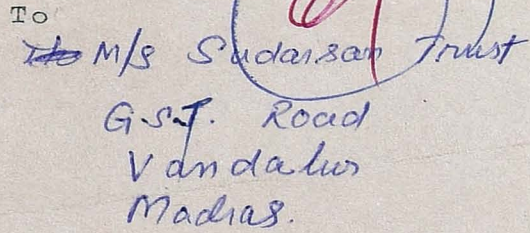 To
M/s Sudarsan Trust
G.S.T. Road
Vandalur
Madras.